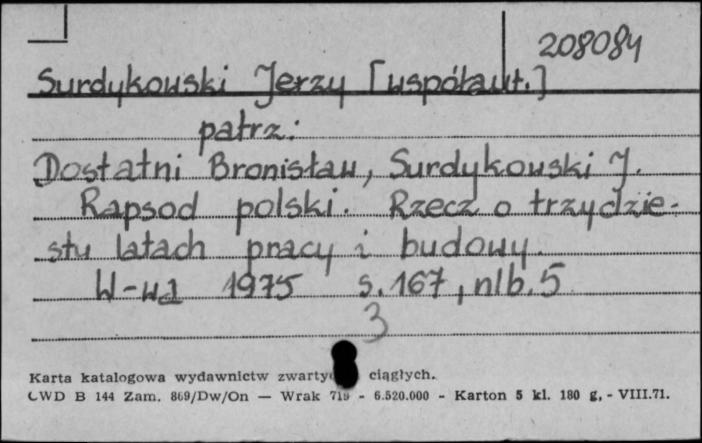 208084
Surdykowski Jerzy [współaut.]
patrz:
Dostatni Bronisław, Surdykowski J.
Rapsod polski. Rzecz o trzydzie-
stu latach pracy i budowy.
W-wa 1975 s. 167, nlb. 5
3
Karta katalogowa wydawnictw ciągłych.
CWD B 144 Zam. 869/Dw/On — Wrak 719 - 6.520.000 - Karton 5 kl. 180 g. - VIII.71.